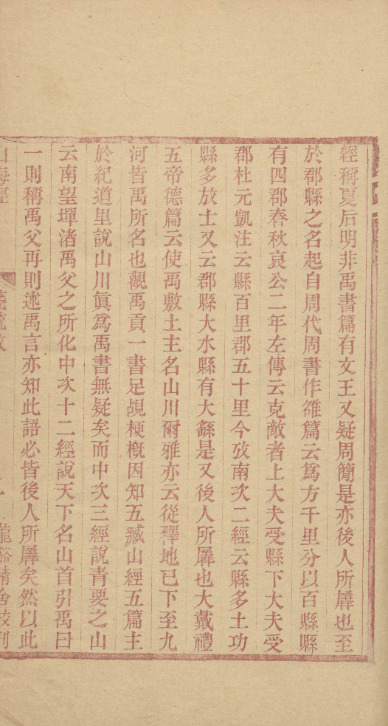 經稱夏后明非禹書篇有文王又疑周簡是亦後人所羼也至
於郡縣之名起自周代周書作雒篇云爲方千里分以百縣縣
有四郡春秋哀公二年左傳云克敵者上大夫受縣下大夫受
郡杜元凱注云縣百里郡五十里今攷南次二經云縣多土功
縣多放士又云郡縣大水縣有大繇是又後人所羼也大戴禮
五帝德篇云使禹敷土主名山川爾雅亦云從釋地已下至九
河皆禹所名也觀禹貢一書足覘梗概因知五臧山經五篇主
於紀道里說山川眞爲禹書無疑矣而中次三經說青要之山
云南望墠渚禹父之所化中次十二經說天下名山首引禹曰
一則稱禹父再則述禹言亦知此語必皆後人所羼矣然以此
山海經